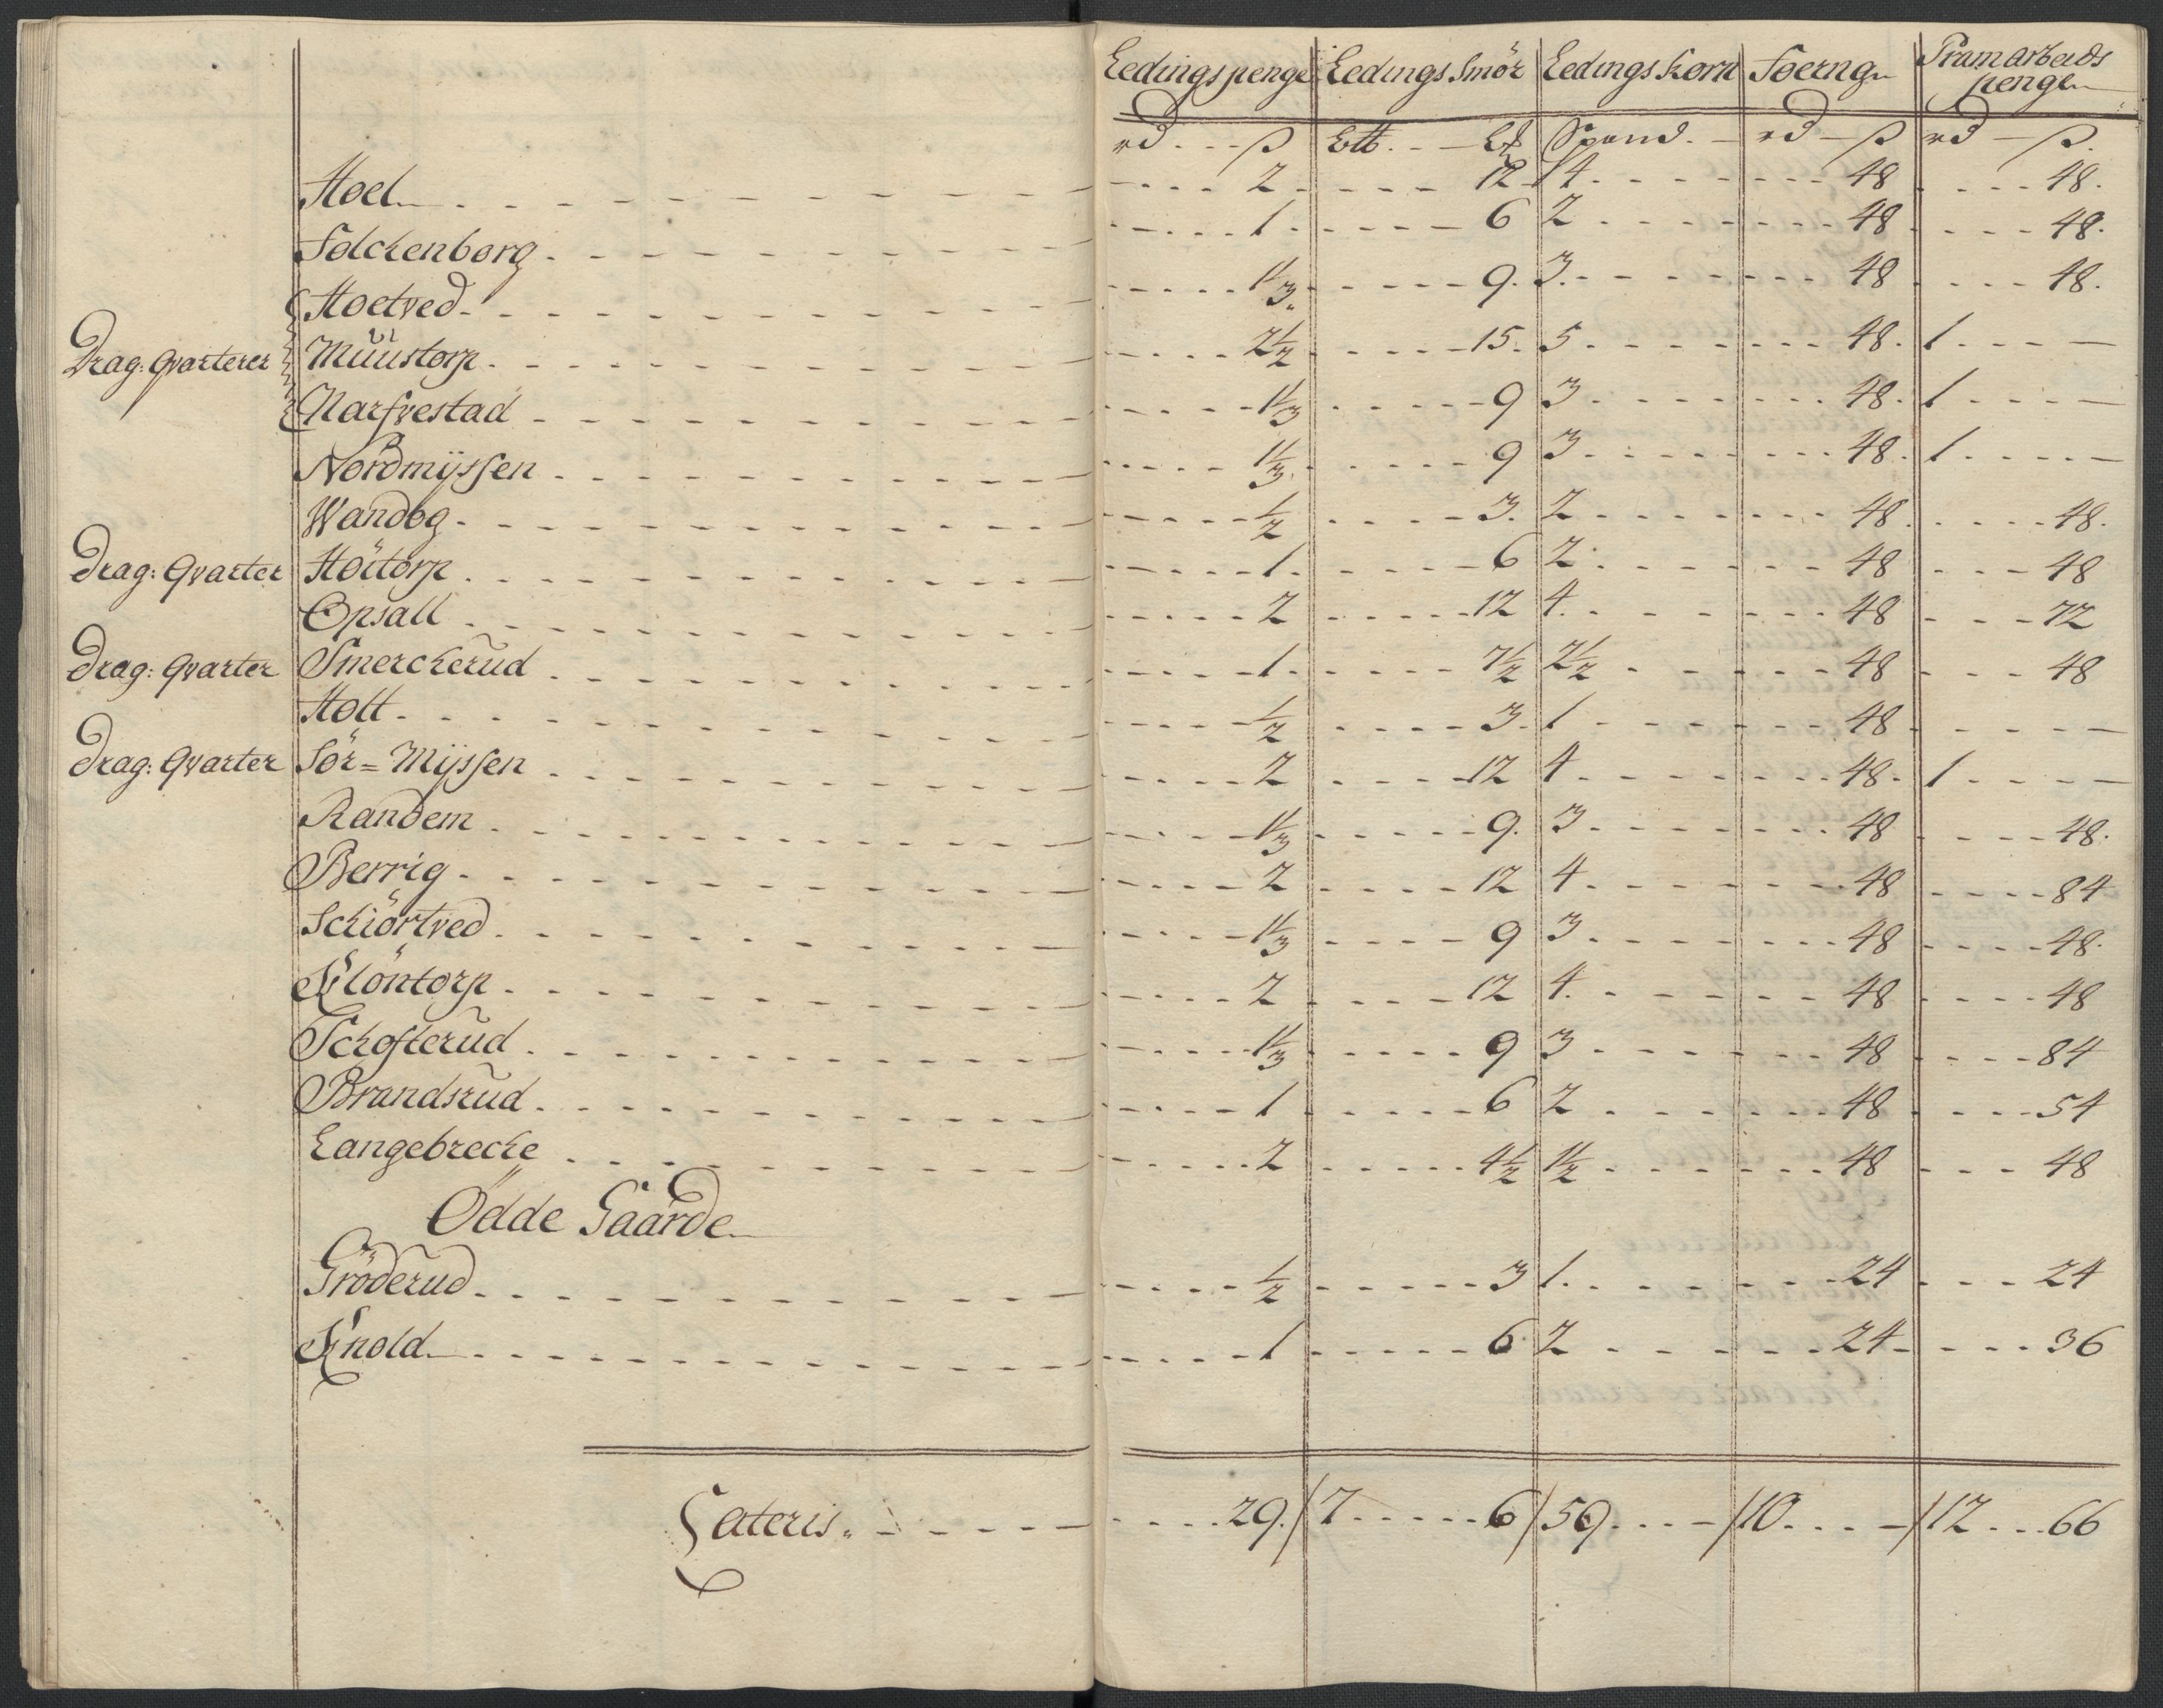 Ledingspenge Ledings Smör Ledings Korn Foering Pramarbeids penge
rd ß Ltt. Spand. rd ß rd ß.
Hoel 2 12 4 48 48.
Folckenborg 1 6 2 48 48.
Hoetved 1⅓ 9. 3. 48 48.
Drag: Qvarterer Muustorp 2½ 15. 5 48. 1
Narfvestad 1⅓ 9 3 48. 1
Nordmÿssen 1⅓ 9 3 48. 1
Wandog ½ 3. 2 48. 48.
Drag: Qvarter Höitorp 1 6 2 48 48
Opsall 2 12 4. 48 72
Drag: Qvarter Smerckerud 1 7½ 2½ 48 48
Holt ½ 3. 1 48
Drag: Qvarter Sör=Mÿssen 2 12 4 48. 1
Randem 1⅓ 9. 3 48 48.
Berrig 2 12 4 48 84
Schiörtved 1⅓ 9 3 48 48.
Klöntorp 2 12 4. 48 48
Schofterud 1⅓ 9 3 48 84
Brandsrud 1 6 2 48 54
Langebrecke 2 4½ 1½ 48 48
Ödde Gaarde
Gröderud ½ 3 1. 24 24
Knold 1 6 2 24 36
Lateris. 29. / 7 6 / 59 / 10 / 12 66